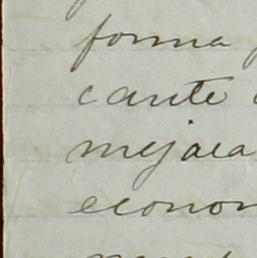 forma
cante
mejara
econom